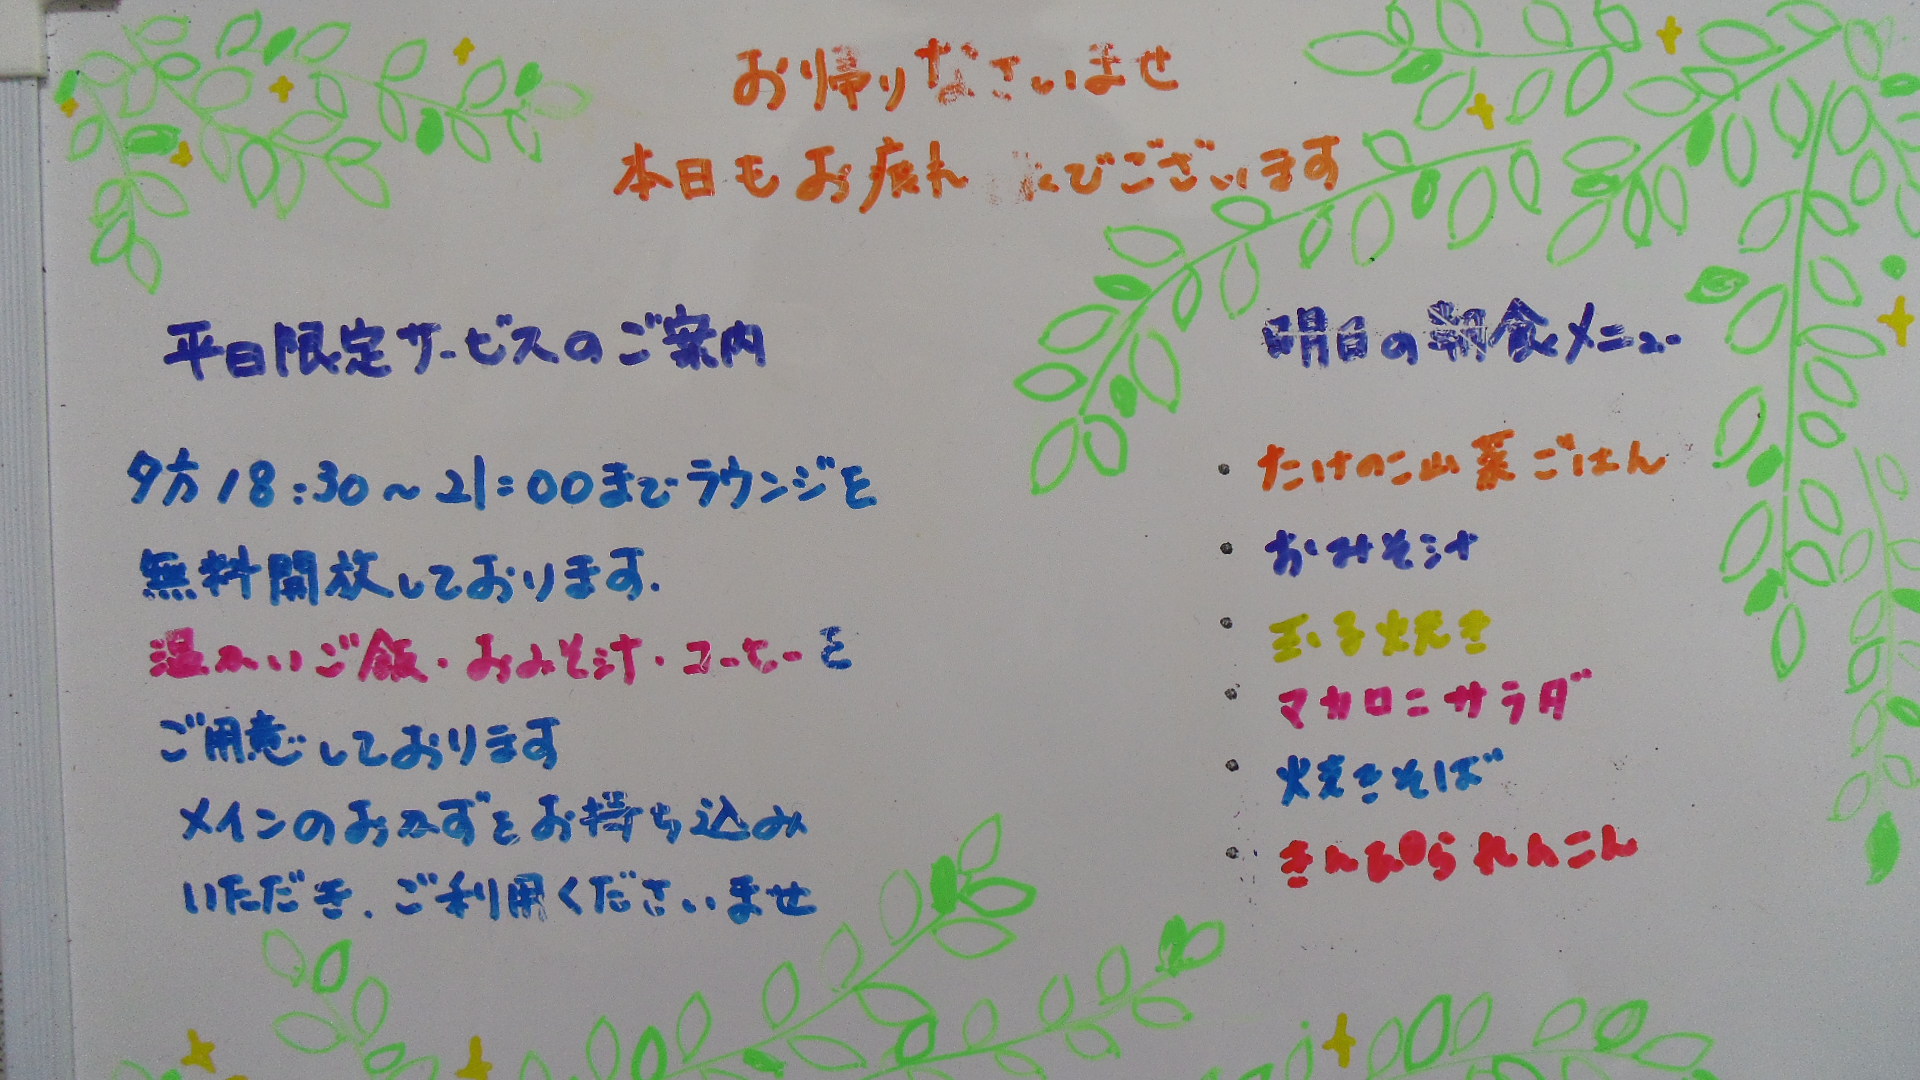 お帰りなさいませ
本日もお疲れ でございます
平日限定サービスのご案内
夕方18:30～21:00までラウンジを
無料開放しております.
温かいご飯・おみそ汁・コーヒーを
ご用意しております
メインのおかずをお持ち込み
いただき、ご利用くださいませ
明日の朝食メニュー
・たけのこ山菜ごはん
・おみそ汁
・玉子焼き
・マカロニサラダ
・焼きそば
・きんぴられんこん